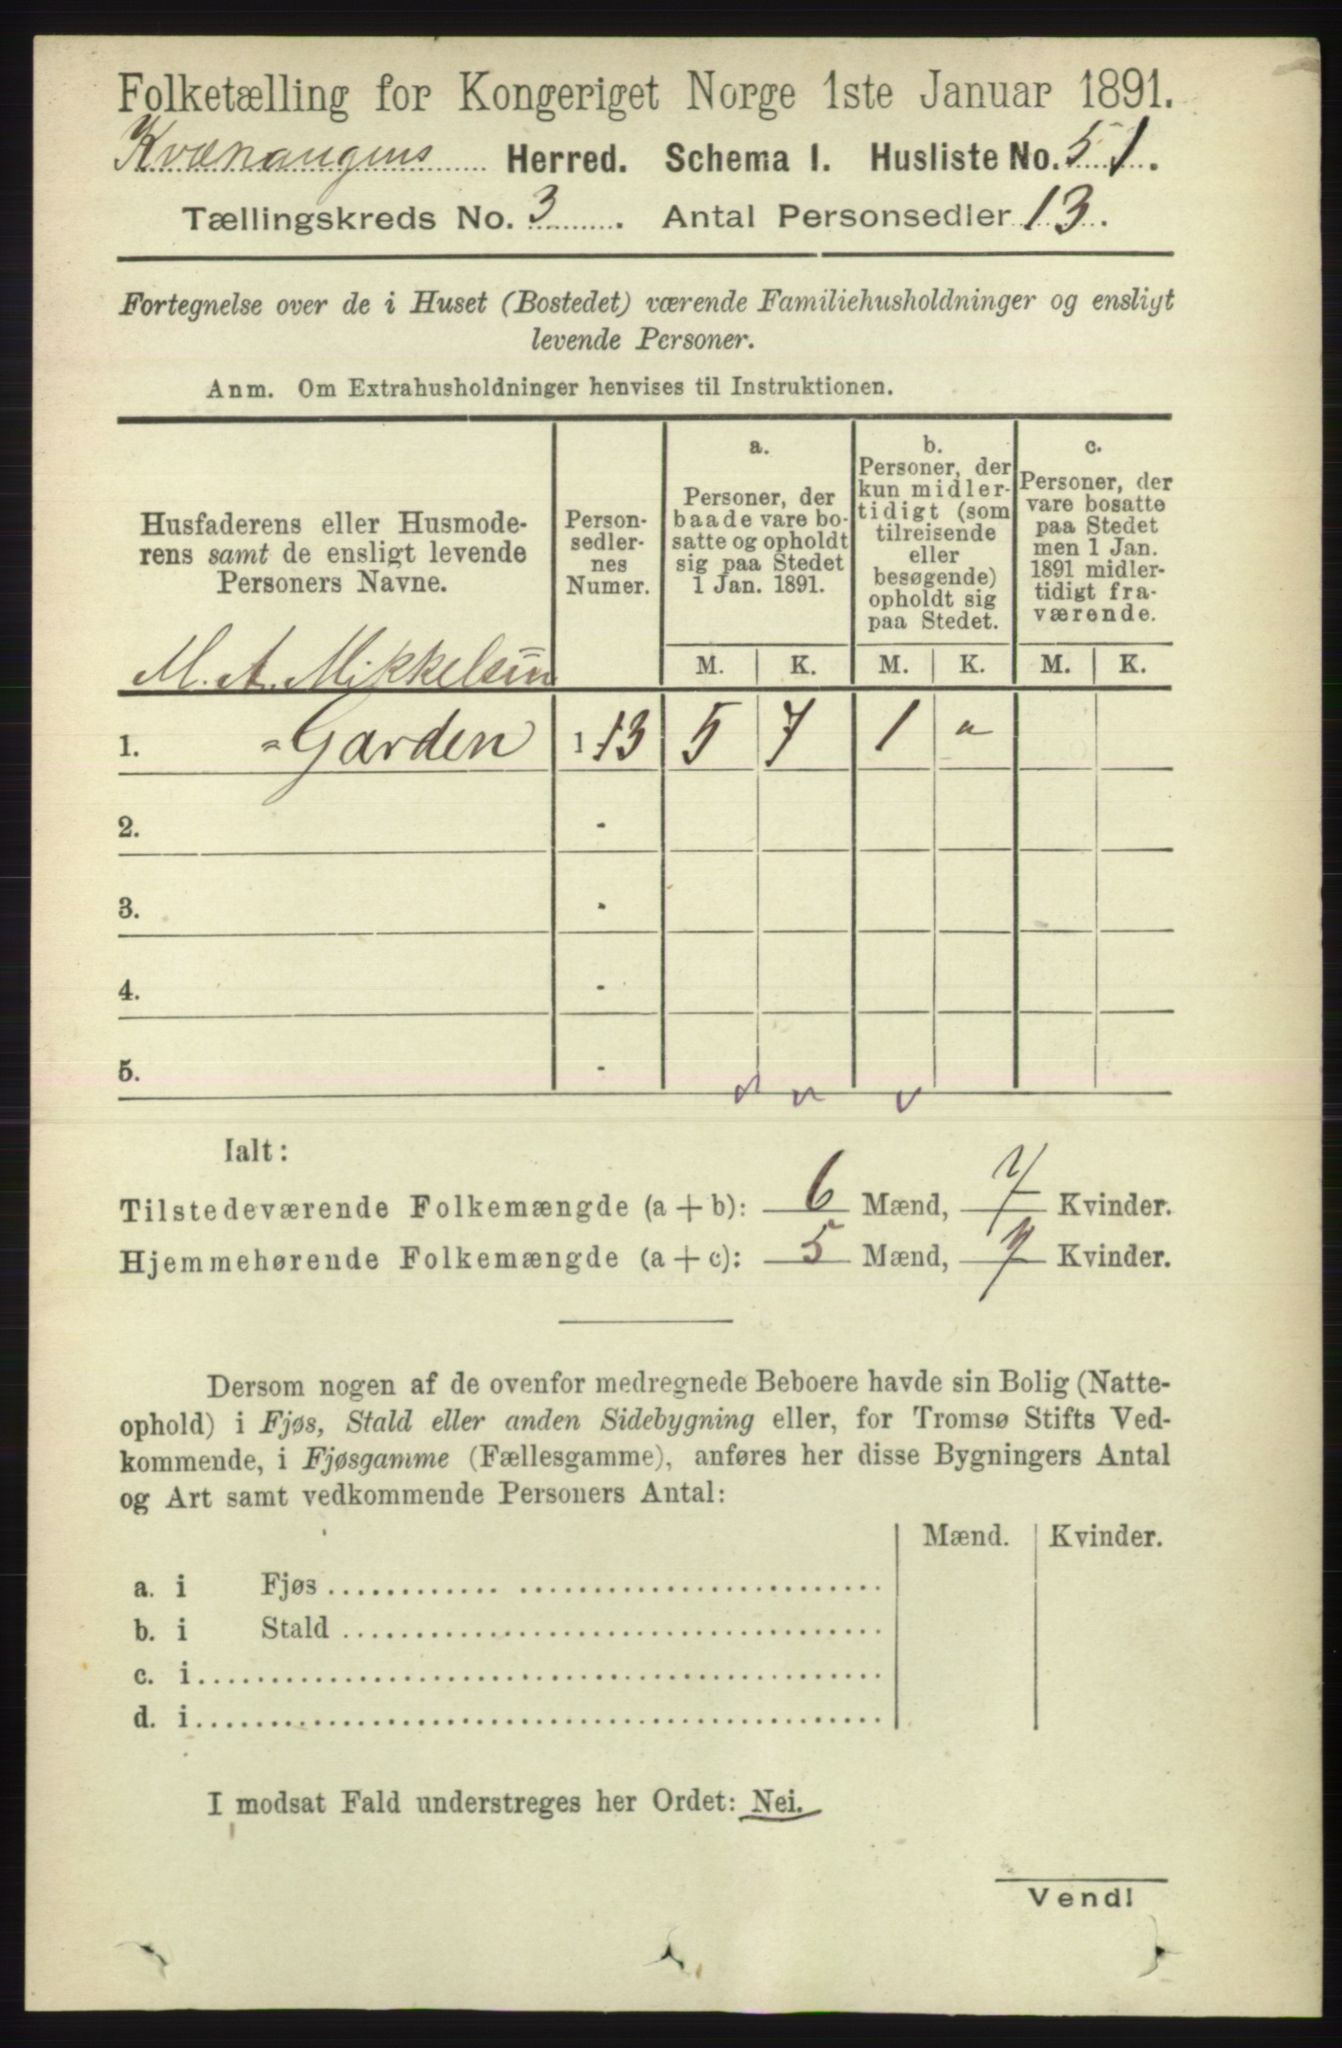 Folketælling for Kongeriget Norge 1ste Januar 1891.
Kvænangens Herred. Schema I. Husliste No. 51.
Tællingskreds No. 3. Antal Personsedler 13.
Fortegnelse over de i Huset (Bostedet) værende Familiehusholdninger og ensligt
levende Personer.
Anm. Om Extrahusholdninger henvises til Instruktionen.
Husfaderens eller Husmode-
rens samt de ensligt levende
Personers Navne.
Person-
sedler-
nes
Numer.
a.
Personer, der
baade vare bo-
satte og opholdt
sig paa Stedet
1 Jan. 1891.
b.
Personer, der
kun midler-
tidigt (som
tilreisende
eller
besøgende)
opholdt sig
paa Stedet.
c.
Personer, der
vare bosatte
paa Stedet
men 1 Jan.
1891 midler-
tidigt fra-
værende.
M. K. M. K. M. K.
M. A. Mikkelsen
1. Garden 1-13 5 7 1 "
2. -
3. -
4. -
5. -
Ialt:
Tilstedeværende Folkemængde (a + b): 6 Mænd, 7 Kvinder.
Hjemmehørende Folkemængde (a + c): 5 Mænd, 7 Kvinder.
Dersom nogen af de ovenfor medregnede Beboere havde sin Bolig (Natte-
ophold) i Fjøs, Stald eller anden Sidebygning eller, for Tromsø Stifts Ved-
kommende, i Fjøsgamme (Fællesgamme), anføres her disse Bygningers Antal
og Art samt vedkommende Personers Antal:
Mænd. Kvinder.
a. i Fjøs
b. i Stald
c. i
d. i
I modsat Fald understreges her Ordet: Nei.
Vend!